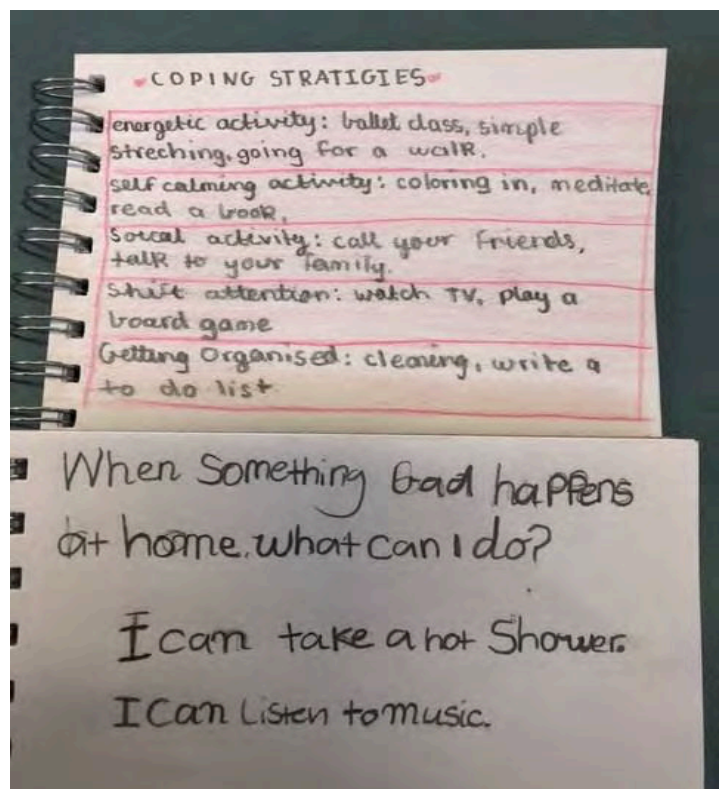 COPING STRATIGIES
energetic activity: ballet class, simple
streching, going for a walk.
self calming activity: coloring in, meditate,
read a book,
Soical activity: call your friends,
talk to your family.
Shift attention: watch TV, play a
board game
Getting organised: cleaning, write a
to do list.
When Something bad happens
at home. what can I do?
I can take a hot Shower.
I Can Listen to music.